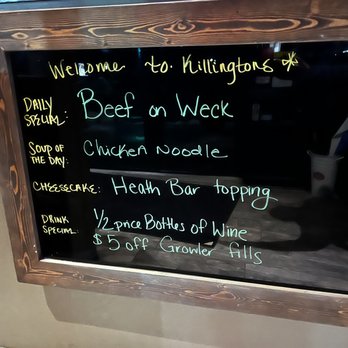 Welcome to Killingtons *
DAILY SPECIAL: Beef on Weck
SOUP OF THE DAY: Chicken Noodle
CHEESECAKE: Heath Bar topping
DRINK SPECIAL: 1/2 price Bottles of Wine
$5 off Growler fills